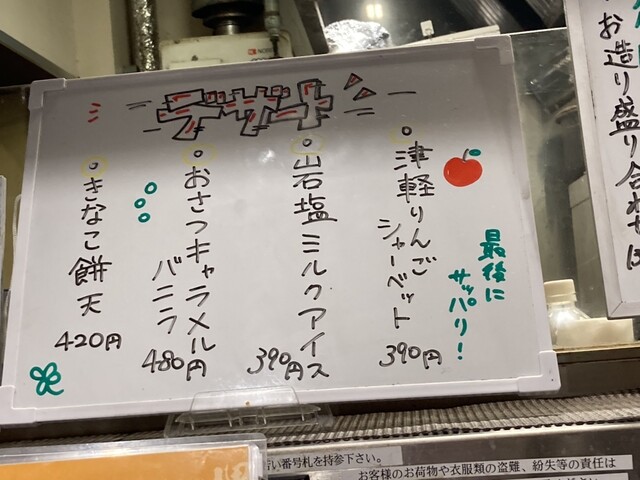 デザート
津軽りんご
シャーベット
390円
最後に
サッパリ!
岩塩ミルクアイス
390円
おさつキャラメル
バニラ
480円
きなこ餅天
420円
お造り盛り合わせ
い番号札を持参下さい。
お客様のお荷物や衣服類の盗難、紛失等の責任は